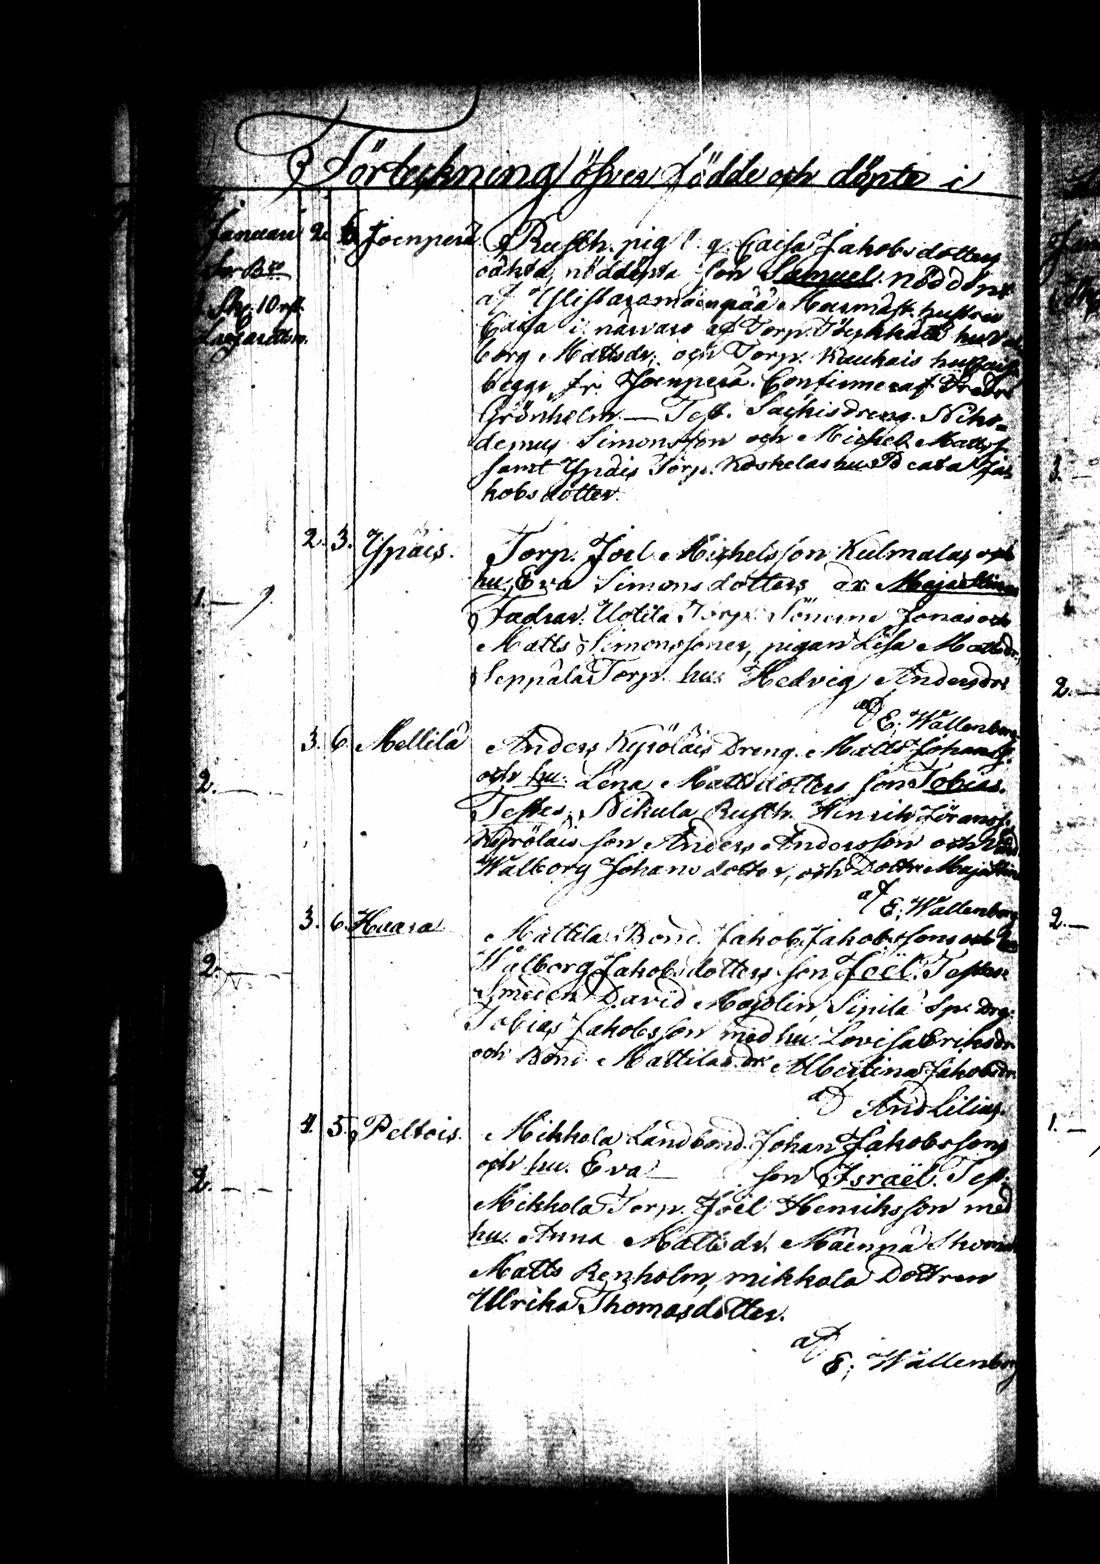 Förteckning öfver födde och döpte i
Januari 2. 6. Joenperä. Rusth. pig. Caisa Jakobsdotters
oäkta nöddöpta son Samuel. nöddöpt
af Ylistaromäenpää hustru
Caisa i närvaro af Torp. hu Val-
borg Mattsdr. och Torp. Kaukais hu
begge fr. Joenperä. Confirmeraf
Grönholm. — Test. dreng. Niko-
demus Simonsson och Michel Matts
samt Ypäis Torp. Koskelas hu Ja-
kobsdotter.
2. 3. Ypäis. Torp. Joel Michelsson Kulmalas och
hu. Eva Simonsdotters dr. Maja Stina
1. — Faddrar. Uotila Torp. Sönerne Jonas och
Matts Simonssöner, pigan Lisa Mattsdr.
Seppälä Torp. hu: Hedvig Andersdr
af E. Wallenberg
3. 6. Mellilä Anders Kyröläis Dreng. Matts Johanss.
2. — och hu. Lena Mattsdotters son Tobias.
Testes, Nikula Rusth. Hinrik Göranss.
Kyröläis son Anders Andersson och
Walborg Johansdotter, och Dottr. Maja Stina
af E. Wallenberg
3. 6. Haara Mattila Bond. Jakob Jakobssons och hu
2. — Walborg Jakobsdotters son Joël. Testes
Smeden David Majolin, Sipilä Sp. Drg.
Tobias Jakobsson med hu. Lovisa Eriksdr
och Bond. Mattilas dr. Albertina Jakobsdr.
af And Lilius.
4. 5. Peltois. Mikkola Landbond. Johan Jakobssons
2. — och hu. Eva — son Israël. Test.
Mikkola Torp. Joel Henriksson med
hu. Anna Mattsdr. Mäenpä
Matts Renholm, mikkola Dottren
Ulrika Thomasdotter.
af E. Wallenberg